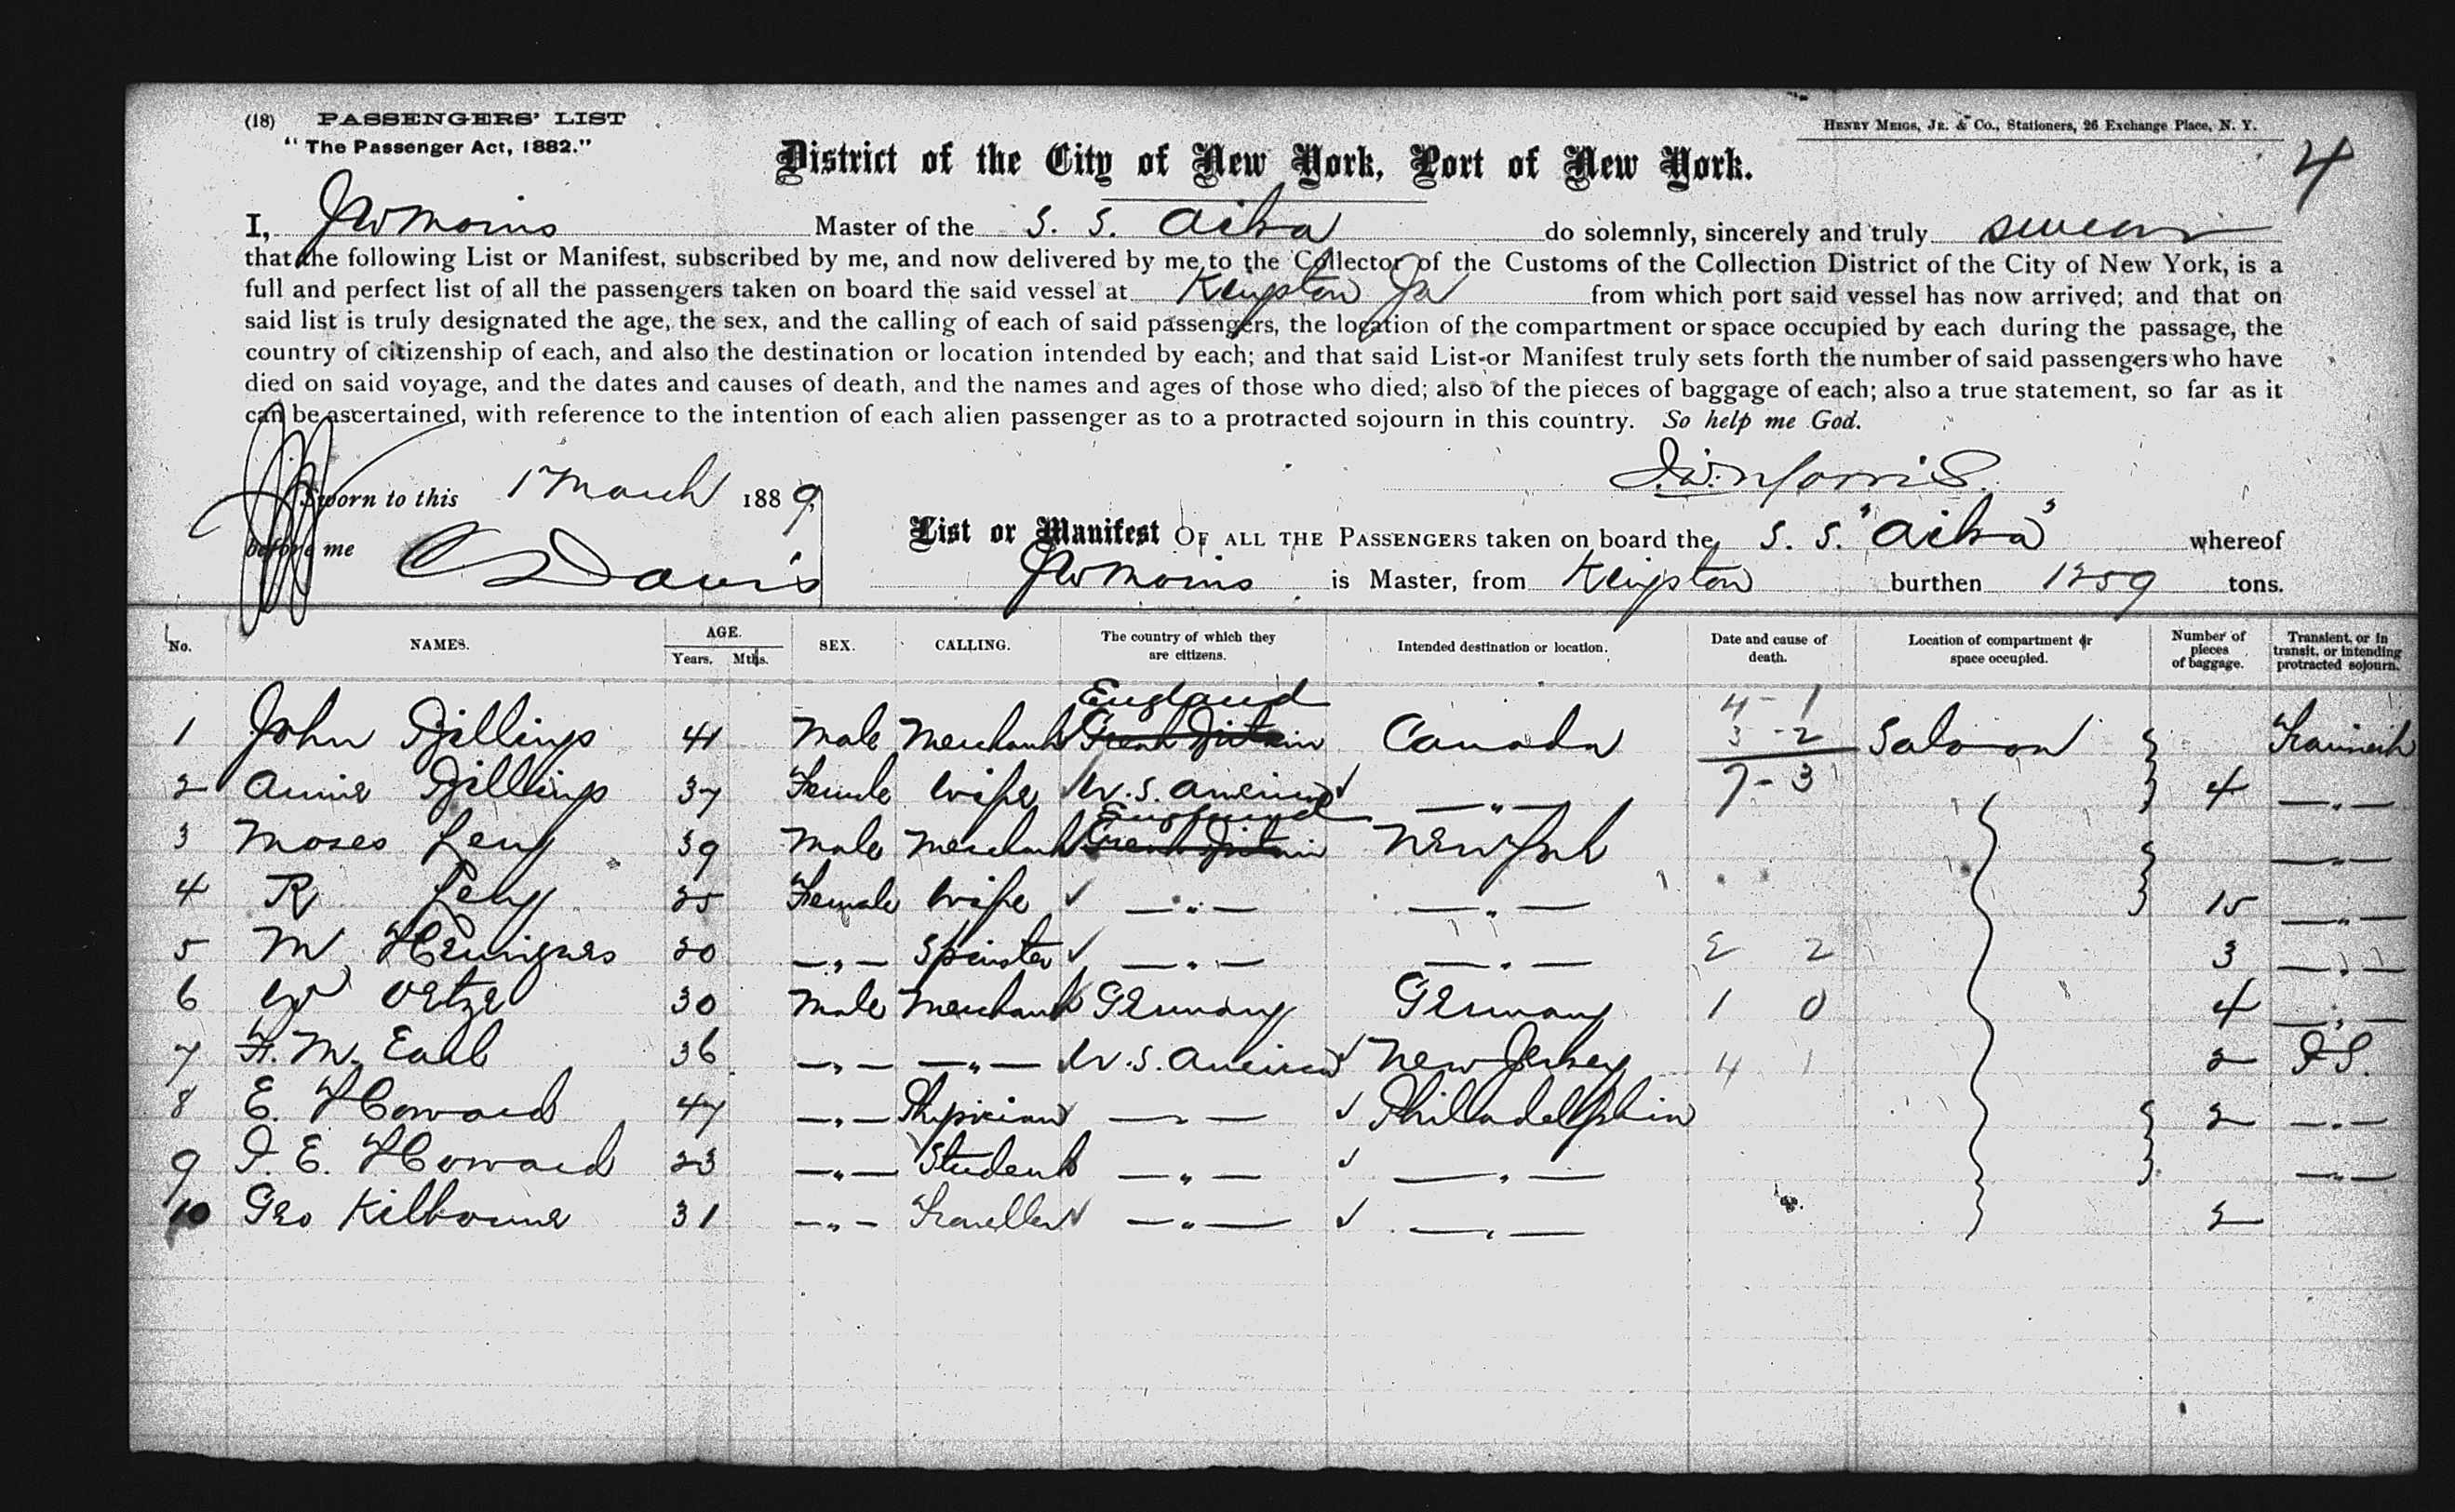 (18) PASSENGERS' LIST
"The Passenger Act, 1882."
HENRY MEIGS, JR. & Co., Stationers, 26 Exchange Place, N. Y.
4
District of the City of New York, Port of New York.
I, JW Morris Master of the S. S. Ailsa do solemnly, sincerely and truly swear
that the following List or Manifest, subscribed by me, and now delivered by me to the Collector of the Customs of the Collection District of the City of New York, is a
full and perfect list of all the passengers taken on board the said vessel at Kingston Ja from which port said vessel has now arrived; and that on
said list is truly designated the age, the sex, and the calling of each of said passengers, the location of the compartment or space occupied by each during the passage, the
country of citizenship of each, and also the destination or location intended by each; and that said List or Manifest truly sets forth the number of said passengers who have
died on said voyage, and the dates and causes of death, and the names and ages of those who died; also of the pieces of baggage of each; also a true statement, so far as it
can be ascertained, with reference to the intention of each alien passenger as to a protracted sojourn in this country. So help me God.
J.W. Morris.
Sworn to this 1 March 1889
before me C Davis
List or Manifest OF ALL THE PASSENGERS taken on board the S. S. "Ailsa" whereof
JW Morris is Master, from Kingston burthen 1259 tons.
No. NAMES. AGE. Years. Mths. SEX. CALLING. The country of which they are citizens. Intended destination or location. Date and cause of death. Location of compartment or space occupied. Number of pieces of baggage. Transient, or in transit, or intending protracted sojourn.
England 4-1
1 John 41 Male Merchant Great Britain Canada 3-2 Saloon Transient
2 Annie 37 Female Wife U.S. America —"— 7-3 4 —"—
England
3 Moses Levy 39 Male Merchant Great Britain New York —"—
4 R Levy 25 Female Wife —"— —"— 15 —"—
5 M Henriques 20 —"— Spinster —"— —"— 2 2 3 —"—
6 30 Male Merchant Germany Germany 1 0 4 —"—
7 F. M. Earl 36 —"— —"— U.S. America New Jersey 4 1 2
8 E. Howard 47 —"— Physician —"— Philadelphia 2 —"—
9 E. Howard 23 —"— Student —"— —"— —"—
10 Geo Kilbourne 31 —"— Traveller —"— —"— 2